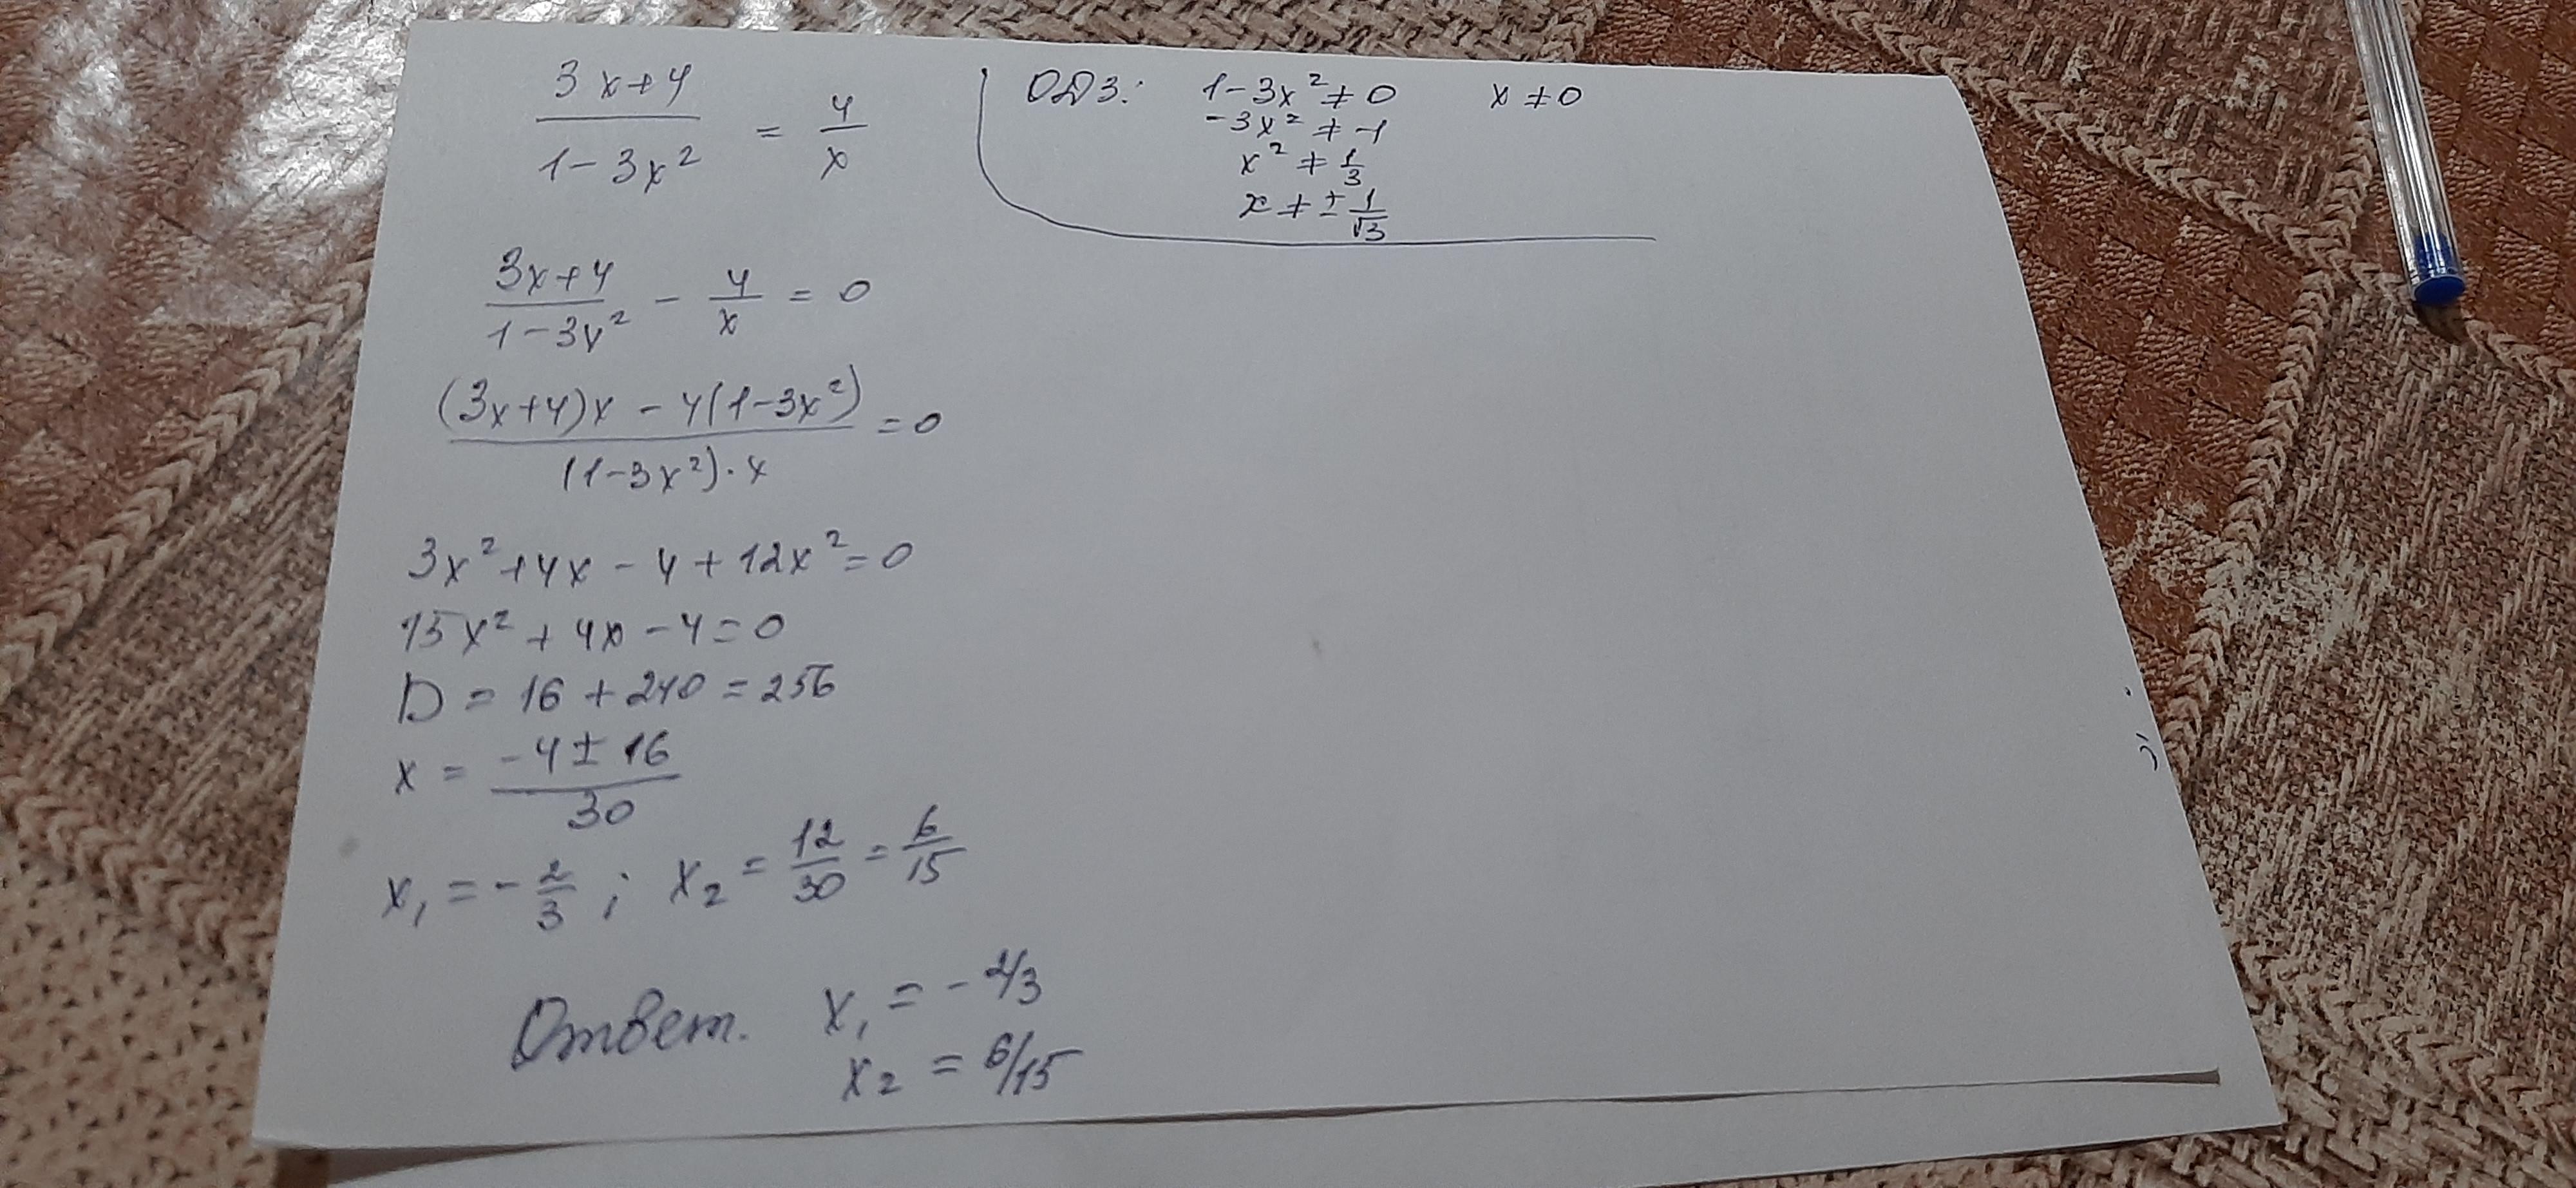 (3x+4)/(1-3x²) = 4/x
ОДЗ: 1-3x² ≠ 0 x ≠ 0
-3x² ≠ -1
x² ≠ 1/3
x ≠ ± 1/√3
(3x+4)/(1-3x²) - 4/x = 0
((3x+4)x - 4(1-3x²))/((1-3x²)·x) = 0
3x² + 4x - 4 + 12x² = 0
15x² + 4x - 4 = 0
D = 16 + 240 = 256
x = (-4 ± 16)/30
x₁ = -2/3 ; x₂ = 12/30 = 6/15
Ответ. x₁ = -2/3
x₂ = 6/15